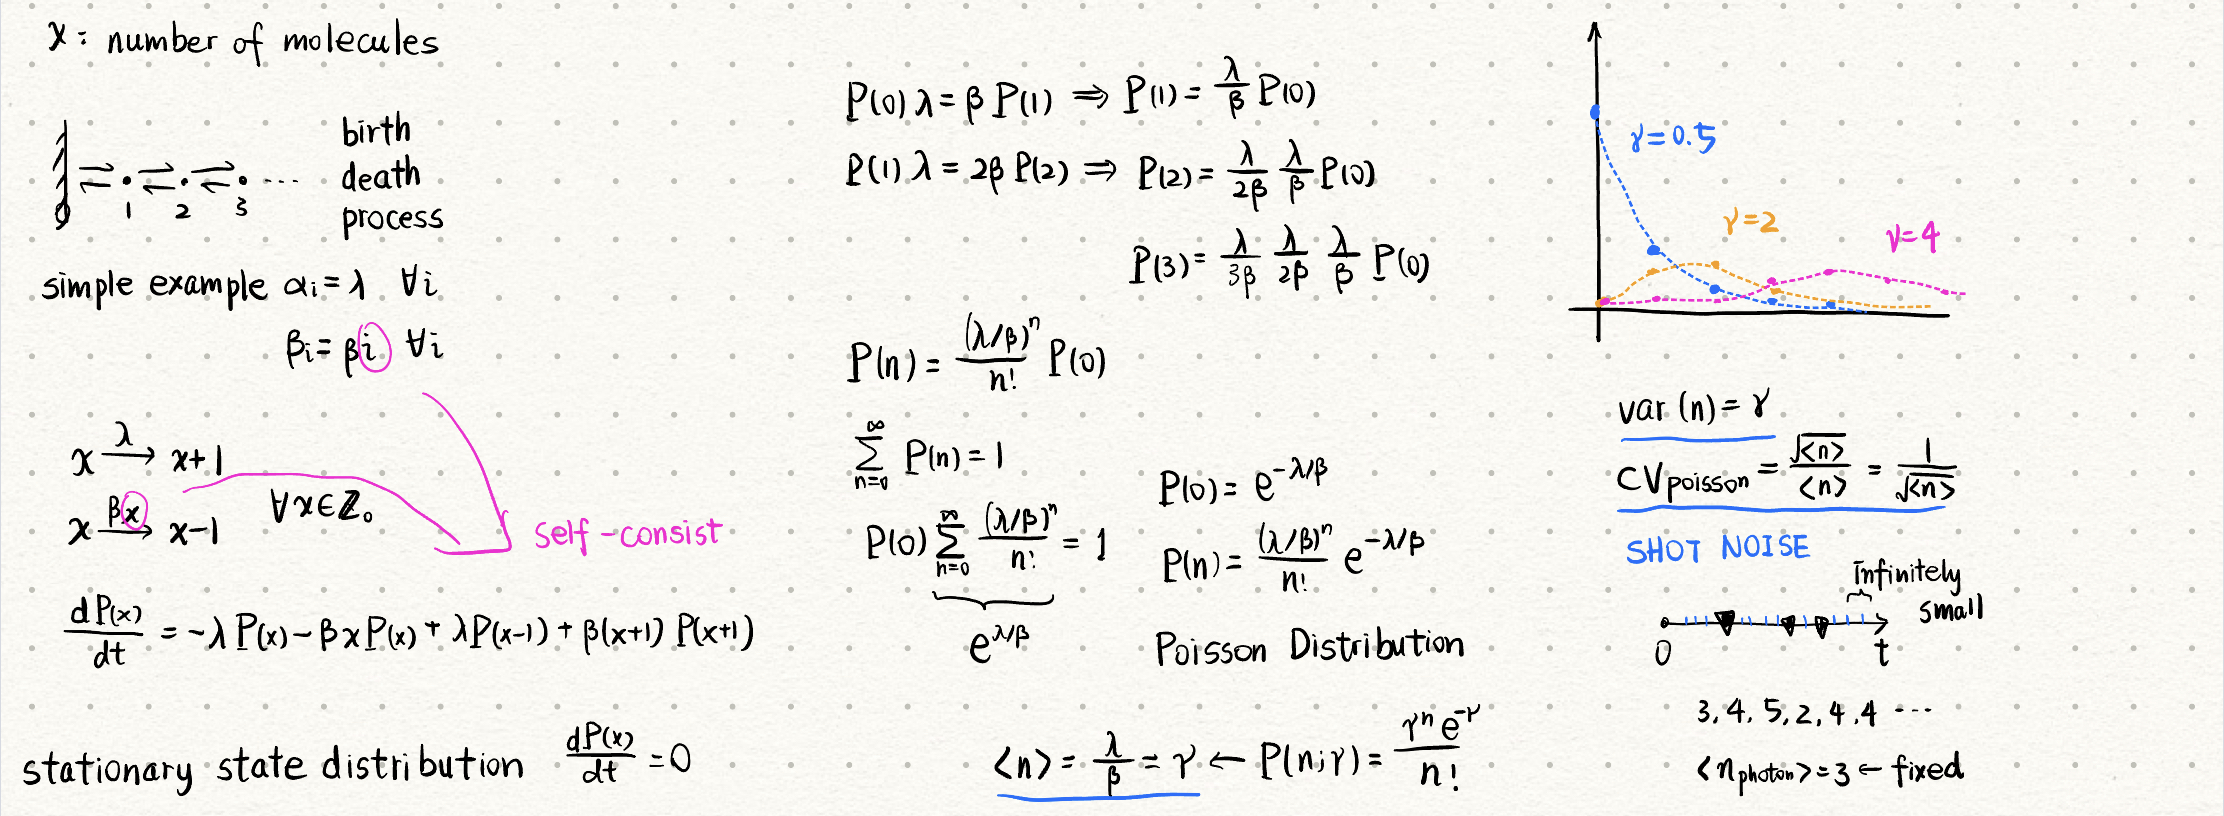 x : number of molecules
0 ⇌ 1 ⇌ 2 ⇌ 3 ...
birth
death
process
simple example αi = λ ∀i
βi = βi ∀i
x —λ→ x+1
x —βx→ x-1
∀x∈ℤ₀
self-consist
dP(x)/dt = -λP(x) - βxP(x) + λP(x-1) + β(x+1) P(x+1)
stationary state distribution dP(x)/dt = 0
P(0)λ = βP(1) ⇒ P(1) = λ/β P(0)
P(1)λ = 2βP(2) ⇒ P(2) = λ/2β λ/β P(0)
P(3) = λ/3β λ/2β λ/β P(0)
P(n) = (λ/β)^n/n! P(0)
∑_{n=0}^{∞} P(n) = 1
P(0) ∑_{n=0}^{∞} (λ/β)^n/n! = 1
e^{λ/β}
P(0) = e^{-λ/β}
P(n) = (λ/β)^n/n! e^{-λ/β}
Poisson Distribution
<n> = λ/β = γ ← P(n;γ) = γ^n e^{-γ}/n!
γ=0.5
γ=2
γ=4
var (n) = γ
CV_poisson = √<n>/<n> = 1/√<n>
SHOT NOISE
infinitely
small
0 t
3, 4, 5, 2, 4, 4 ...
<n_photon> = 3 ← fixed